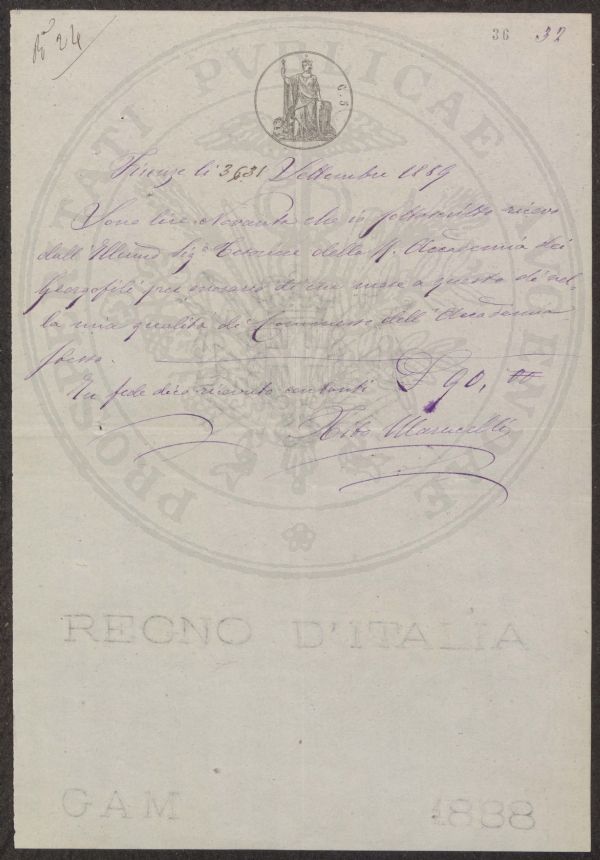 Nº 24
36 32
Firenze li 31 Settembre 1889
Sono lire Novanta che io sottoscritto ricevo
dall' Illmo Sigr Tesoriere della R. Accademia dei
Georgofili per onorario di un mese a questo dì nel-
la mia qualità di Commesso dell' Accademia
stessa.
£ 90, 00
In fede dico ricevuto contanti
Maruccelli
PROSPERITATI PVBLICAE AVGENDAE
REGNO D'ITALIA
GAM 1888